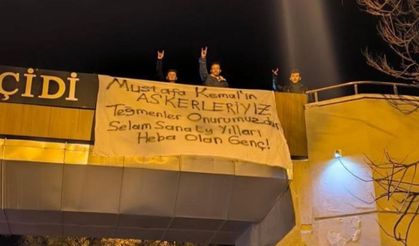 ÇİDİ
Mustafa Kemal'in
ASKERLERİYİZ
Teğmenler Onurumuzdur
Selam Sana ey Yılları
Heba Olan Genç!